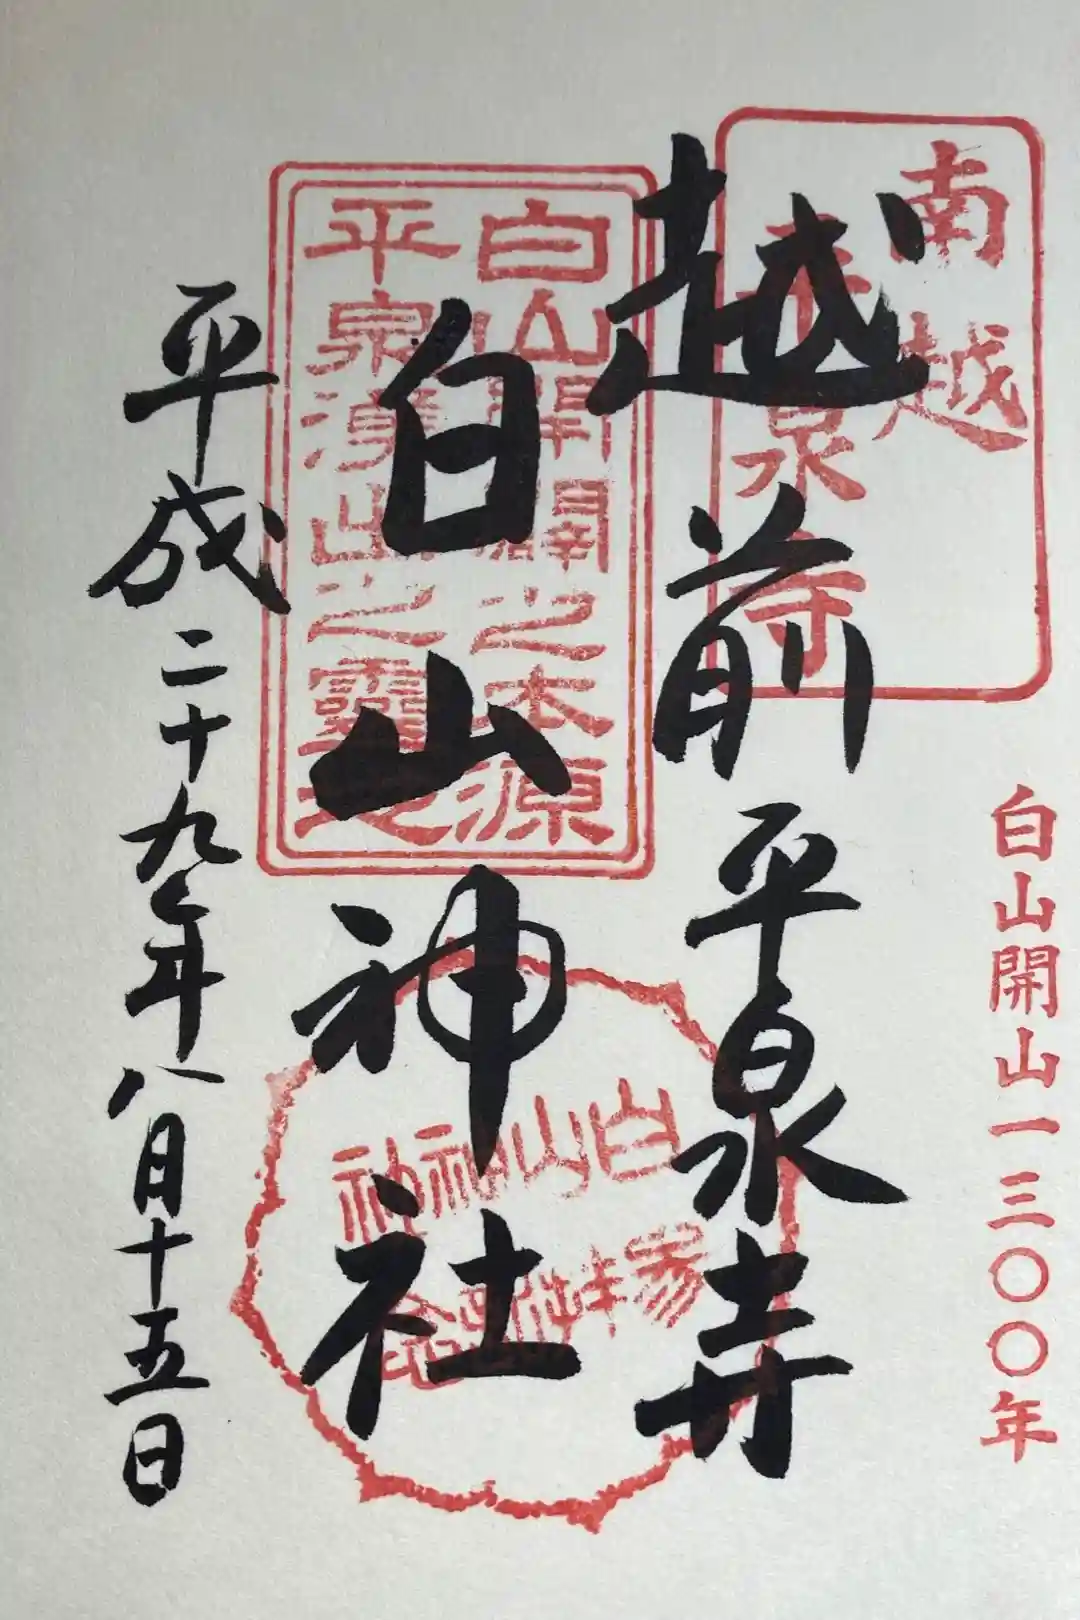 白山開山一三〇〇年
南越
平泉寺
越前平泉寺
白山開闢之本源
平泉淨山之靈
白山神社
白山神社
参拝記念
平成二十九年八月十五日